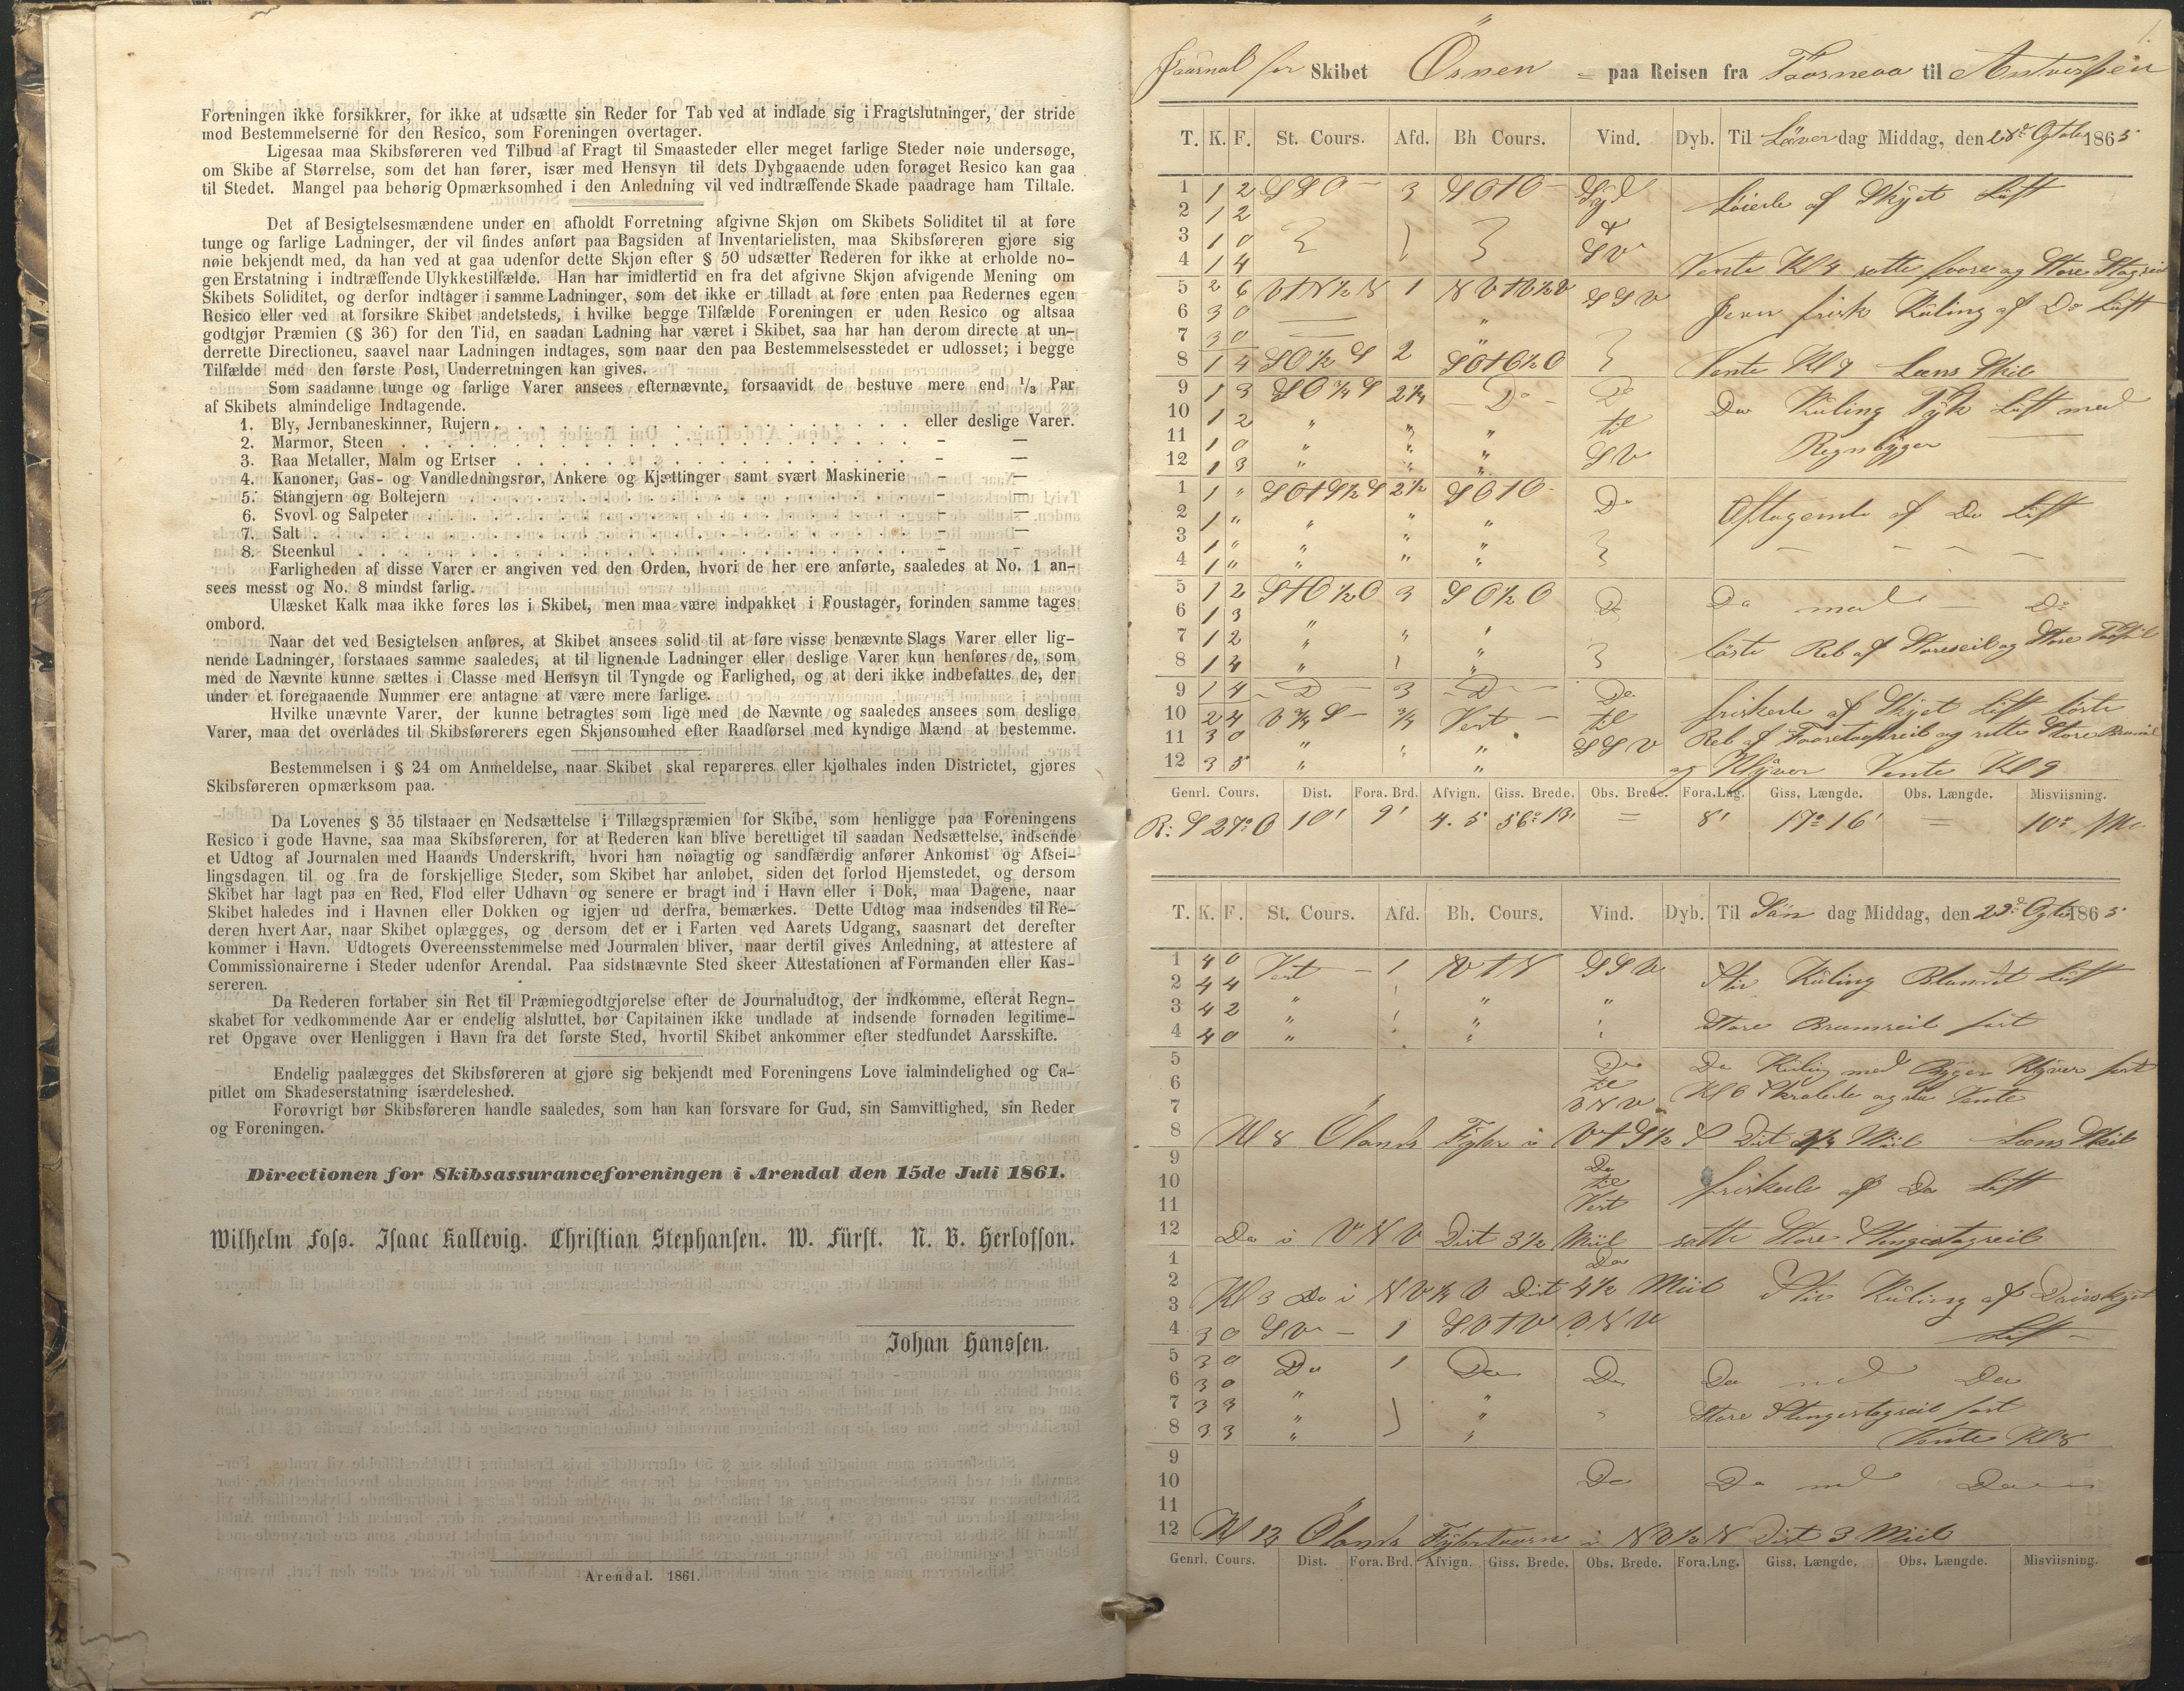 Foreningen ikke forsikkrer, for ikke at udsætte sin Reder for Tab ved at indlade sig i Fragtslutninger, der stride
mod Bestemmelserne for den Resico, som Foreningen overtager.
Ligesaa maa Skibsføreren ved Tilbud af Fragt til Smaasteder eller meget farlige Steder nøie undersøge,
om Skibe af Størrelse, som det han fører, især med Hensyn til dets Dybgaaende uden forøget Resico kan gaa
til Stedet. Mangel paa behørig Opmærksomhed i den Anledning vil ved indtræffende Skade paadrage ham Tiltale.
Det af Besigtelsesmændene under en afholdt Forretning afgivne Skjøn om Skibets Soliditet til at føre
tunge og farlige Ladninger, der vil findes anført paa Bagsiden af Inventarielisten, maa Skibsføreren gjøre sig
nøie bekjendt med, da han ved at gaa udenfor dette Skjøn efter § 50 udsætter Rederen for ikke at erholde no-
gen Erstatning i indtræffende Ulykkestilfælde. Han har imidlertid en fra det afgivne Skjøn afvigende Mening om
Skibets Soliditet, og derfor indtager i samme Ladninger, som det ikke er tilladt at føre enten paa Redernes egen
Resico eller ved at forsikre Skibet andetsteds, i hvilke begge Tilfælde Foreningen er uden Resico og altsaa
godtgjør Præmien (§ 36) for den Tid, en saadan Ladning har været i Skibet, saa har han derom directe at un-
derrette Directioneu, saavel naar Ladningen indtages, som naar den paa Bestemmelsesstedet er udlosset; i begge
Tilfælde med den første Post, Underretningen kan gives.
Som saadanne tunge og farlige Varer ansees efternævnte, forsaavidt de bestuve mere end 1/3 Par
af Skibets almindelige Indtagende.
1. Bly, Jernbaneskinner, Rujern . . . . eller deslige Varer.
2. Marmor, Steen . . . . - —
3. Raa Metaller, Malm og Ertser . . . . - —
4. Kanoner, Gas- og Vandledningsrør, Ankere og Kjættinger samt svært Maskinerie - —
5. Stangjern og Boltejern . . . . - —
6. Svovl og Salpeter . . . . - —
7. Salt . . . . - —
8. Steenkul . . . . - -
Farligheden af disse Varer er angiven ved den Orden, hvori de her ere anførte, saaledes at No. 1 an-
sees messt og No. 8 mindst farlig.
Ulæsket Kalk maa ikke føres løs i Skibet, men maa være indpakket i Foustager, forinden samme tages
ombord.
Naar det ved Besigtelsen anføres, at Skibet ansees solid til at føre visse benævnte Slags Varer eller lig-
nende Ladninger, forstaaes samme saaledes, at til lignende Ladninger eller deslige Varer kun henføres de, som
med de Nævnte kunne sættes i Classe med Hensyn til Tyngde og Farlighed, og at deri ikke indbefattes de, der
under et foregaaende Nummer ere antagne at være mere farlige.
Hvilke unævnte Varer, der kunne betragtes som lige med de Nævnte og saaledes ansees som deslige
Varer, maa det overlades til Skibsførerers egen Skjønsomhed efter Raadførsel med kyndige Mænd at bestemme.
Bestemmelsen i § 24 om Anmeldelse, naar Skibet skal repareres eller kjølhales inden Districtet, gjøres
Skibsføreren opmærksom paa.
Da Lovenes § 35 tilstaaer en Nedsættelse i Tillægspræmien for Skibe, som henligge paa Foreningens
Resico i gode Havne, saa maa Skibsføreren, for at Rederen kan blive berettiget til saadan Nedsættelse, indsende
et Udtog af Journalen med Haands Underskrift, hvori han nøiagtig og sandfærdig anfører Ankomst og Afsei-
lingsdagen til og fra de forskjellige Steder, som Skibet har anløbet, siden det forlod Hjemstedet, og dersom
Skibet har lagt paa en Red, Flod eller Udhavn og senere er bragt ind i Havn eller i Dok, maa Dagene, naar
Skibet haledes ind i Havnen eller Dokken og igjen ud derfra, bemærkes. Dette Udtog maa indsendes til Re-
deren hvert Aar, naar Skibet oplægges, og dersom det er i Farten ved Aarets Udgang, saasnart det derefter
kommer i Havn. Udtogets Overeensstemmelse med Journalen bliver, naar dertil gives Anledning, at attestere af
Commissionairerne i Steder udenfor Arendal. Paa sidstnævnte Sted skeer Attestationen af Formanden eller Kas-
sereren.
Da Rederen fortaber sin Ret til Præmiegodtgjørelse efter de Journaludtog, der indkomme, efterat Regn-
skabet for vedkommende Aar er endelig alsluttet, bør Capitainen ikke undlade at indsende fornøden legitime-
ret Opgave over Henliggen i Havn fra det første Sted, hvortil Skibet ankommer efter stedfundet Aarsskifte.
Endelig paalægges det Skibsføreren at gjøre sig bekjendt med Foreningens Love ialmindelighed og Ca-
pitlet om Skadeserstatning isærdeleshed.
Forøvrigt bør Skibsføreren handle saaledes, som han kan forsvare for Gud, sin Samvittighed, sin Reder
og Foreningen.
Directionen for Skibsassuranceforeningen i Arendal den 15de Juli 1861.
Wilhelm Foss. Isaac Kallevig. Christian Stephansen. W. Fürst. N. B. Herlofson.
Johan Hanssen.
Arendal. 1861.
Journal for Skibet Ösnen = paa Reisen fra Taarneaa til Antverpen
T. K. F. St. Cours. Afd. Bh Cours. Vind. Dyb. Til Löverdag Middag, den 28de Ogtober 1865
1 1 2 SSO — 3 SOtO — Syd Löierle af Skyet Luft
2 1 2 &
3 1 0 SV
4 1 4 Vente Kl 4 satte foore og Store Stagseil
5 2 6 VtN½N 1 NVtV½V SSV Jevn frisk Kuling af Do Luft
6 3 0 "
7 3 0 "
8 1 4 SO½S 2 SOtO½O Vente Kl 7 Læns Skib
9 1 3 SO¾S 2¼ — Do — Do Do Kuling Tyk Luft med
10 1 2 " " " til Regnbyger
11 1 0 " " "
12 1 3 " " " SV
1 1 " SOtS½S 2½ SOtO - Do Aftagende af Do Luft
2 1 " " " "
3 1 " " " "
4 1 " " " "
5 1 2 StO½O 3 SO½O Do Do med Do
6 1 3 "
7 1 2 " " " löste Reb af Storeseil og Store
8 1 4 " "
9 1 4 — Do — 3 — Do — Do friskede af Skyet Luft löste
10 2 4 V¾S — ¾ Vest — til Reb af Fooretopseil og sætte Store
11 3 0 " " " SSV
12 3 5 " " og Klyver Vente Kl 9
Genrl. Cours. Dist. Fora. Brd. Afvign. Giss. Brede. Obs. Brede. Fora.Lng. Giss. Længde. Obs. Længde. Misviisning.
R: S 27° O 10' 9' 4.5 56° 13' = 8' 17° 16' = 10°
T. K. F. St. Cours. Afd. Bh. Cours. Vind. Dyb. Til Sön dag Middag, den 29de Ogtbr 1865
1 4 0 Vest — 1 VtN SSV Stiv Kuling Blandet Luft
2 4 4 "
3 4 2 " " " Store Bramseil fast
4 4 0 " "
5 Do Do Kuling med Byger Klyver fast
6 til Kl 6
7 VNV Vente
8 Kl 8 Ölands Fyhr i VtS½S Dist Miil Læns Skib
9 Do
10 til friskede af Do Luft
11 Vest
12 Do i VNV Dist 3½ Miil satte Store Stengestagseil
1 Do
2 Kl 3 Do i NV½V Dist 4½ Miil Stiv Kuling af
3
4 3 0 SV — 1 SVtV VNV Luft —
5 3 0 Do 1 Do Do Do med Do
6 3 0
7 3 3 " " Store Stengestagseil fast
8 3 3 " " Vente Kl 8
9
10 Do Do med Do
11
12 Kl 12 Ölands Fyhrtaarn i NV½N Dist 3 Miil
Genrl. Cours. Dist. Fora. Brd. Afvign. Giss. Brede. Obs. Brede. Fora.Lng. Giss. Længde. Obs. Længde. Misviisning.